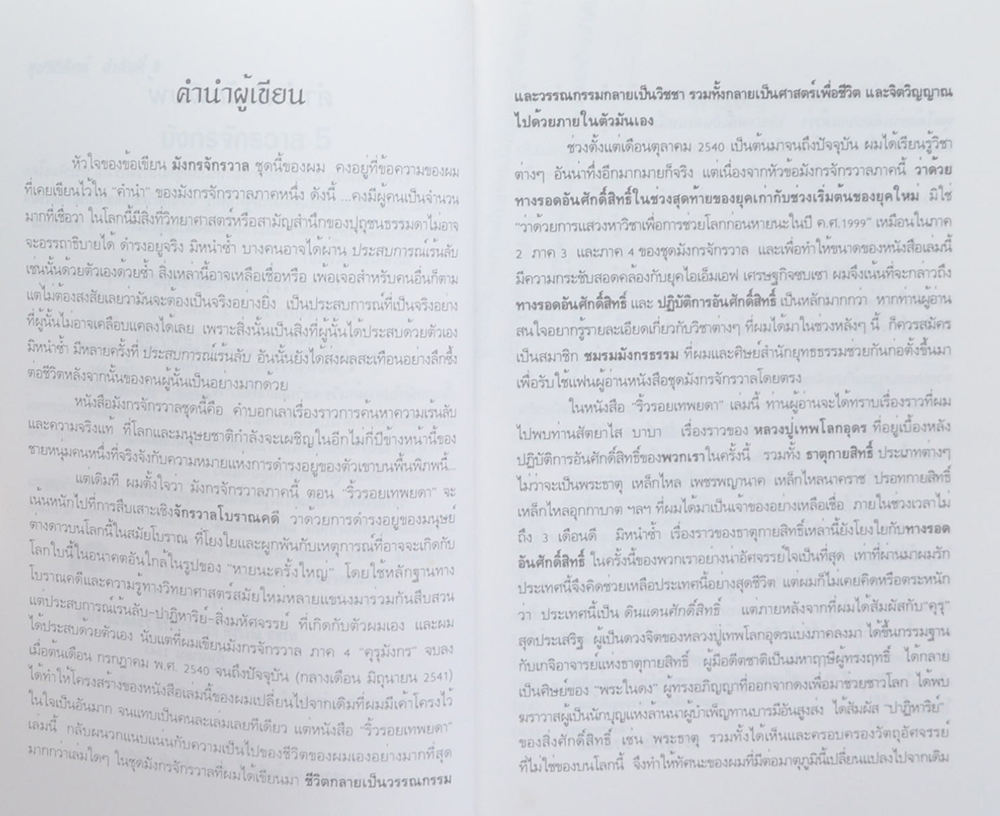 คำนำผู้เขียน
หัวใจของข้อเขียน มังกรจักรวาล ชุดนี้ของผม คงอยู่ที่ข้อความของผม
ที่เคยเขียนไว้ใน "คำนำ" ของมังกรจักรวาลภาคหนึ่ง ดังนี้ ...คงมีผู้คนเป็นจำนวน
มากที่เชื่อว่า ในโลกนี้มีสิ่งที่วิทยาศาสตร์หรือสามัญสำนึกของปุถุชนธรรมดาไม่อาจ
จะอรรถาธิบายได้ ดำรงอยู่จริง มิหนำซ้ำ บางคนอาจได้ผ่าน ประสบการณ์เร้นลับ
เช่นนั้นด้วยตัวเองด้วยซ้ำ สิ่งเหล่านี้อาจเหลือเชื่อหรือ เพ้อเจ้อสำหรับคนอื่นก็ตาม
แต่ไม่ต้องสงสัยเลยว่ามันจะต้องเป็นจริงอย่างยิ่ง เป็นประสบการณ์ที่เป็นจริงอย่าง
ที่ผู้นั้นไม่อาจเคลือบแคลงได้เลย เพราะสิ่งนั้นเป็นสิ่งที่ผู้นั้นได้ประสบด้วยตัวเอง
มิหนำซ้ำ มีหลายครั้งที่ ประสบการณ์เร้นลับ อันนั้นยังได้ส่งผลสะเทือนอย่างลึกซึ้ง
ต่อชีวิตหลังจากนั้นของคนผู้นั้นเป็นอย่างมากด้วย
หนังสือมังกรจักรวาลชุดนี้คือ คำบอกเล่าเรื่องราวการค้นหาความเร้นลับ
และความจริงแท้ ที่โลกและมนุษยชาติกำลังจะเผชิญในอีกไม่กี่ปีข้างหน้านี้ของ
ชายหนุ่มคนหนึ่งที่จริงจังกับความหมายแห่งการดำรงอยู่ของตัวเขาบนพื้นพิภพนี้...
แต่เดิมที ผมตั้งใจว่า มังกรจักรวาลภาคนี้ ตอน "ริ้วรอยเทพยดา" จะ
เน้นหนักไปที่การสืบเสาะเชิงจักรวาลโบราณคดี ว่าด้วยการดำรงอยู่ของมนุษย์
ต่างดาวบนโลกนี้ในสมัยโบราณ ที่โยงใยและผูกพันกับเหตุการณ์ที่อาจจะเกิดกับ
โลกใบนี้ในอนาคตอันใกล้ในรูปของ "หายนะครั้งใหญ่" โดยใช้หลักฐานทาง
โบราณคดีและความรู้ทางวิทยาศาสตร์สมัยใหม่หลายแขนงมารวมกันสืบสวน
แต่ประสบการณ์เร้นลับ-ปาฏิหาริย์-สิ่งมหัศจรรย์ ที่เกิดกับตัวผมเอง และผม
ได้ประสบด้วยตัวเอง นับแต่ที่ผมเขียนมังกรจักรวาล ภาค 4 "คุรุมังกร" จบลง
เมื่อต้นเดือน กรกฎาคม พ.ศ. 2540 จนถึงปัจจุบัน (กลางเดือน มิถุนายน 2541)
ได้ทำให้โครงสร้างของหนังสือเล่มนี้ของผมเปลี่ยนไปจากเดิมที่ผมมีเค้าโครงไว้
ในใจเป็นอันมาก จนแทบเป็นคนละเล่มเลยทีเดียว แต่หนังสือ "ริ้วรอยเทพยดา"
เล่มนี้ กลับผนวกแนบแน่นกับความเป็นไปของชีวิตของผมเองอย่างมากที่สุด
มากกว่าเล่มใดๆ ในชุดมังกรจักรวาลที่ผมได้เขียนมา ชีวิตกลายเป็นวรรณกรรม
และวรรณกรรมกลายเป็นวิชชา รวมทั้งกลายเป็นศาสตร์เพื่อชีวิต และจิตวิญญาณ
ไปด้วยภายในตัวมันเอง
ช่วงตั้งแต่เดือนตุลาคม 2540 เป็นต้นมาจนถึงปัจจุบัน ผมได้เรียนรู้วิชา
ต่างๆ อันน่าทึ่งอีกมากมายก็จริง แต่เนื่องจากหัวข้อมังกรจักรวาลภาคนี้ ว่าด้วย
ทางรอดอันศักดิ์สิทธิ์ในช่วงสุดท้ายของยุคเก่ากับช่วงเริ่มต้นของยุคใหม่ มิใช่
"ว่าด้วยการแสวงหาวิชาเพื่อการช่วยโลกก่อนหายนะในปี ค.ศ.1999" เหมือนในภาค
2 ภาค 3 และภาค 4 ของชุดมังกรจักรวาล และเพื่อทำให้ขนาดของหนังสือเล่มนี้
มีความกระชับสอดคล้องกับยุคไอเอ็มเอฟ เศรษฐกิจซบเซา ผมจึงเน้นที่จะกล่าวถึง
ทางรอดอันศักดิ์สิทธิ์ และ ปฏิบัติการอันศักดิ์สิทธิ์ เป็นหลักมากกว่า หากท่านผู้อ่าน
สนใจอยากรู้รายละเอียดเกี่ยวกับวิชาต่างๆ ที่ผมได้มาในช่วงหลังๆ นี้ ก็ควรสมัคร
เป็นสมาชิก ชมรมมังกรธรรม ที่ผมและศิษย์สำนักยุทธธรรมช่วยกันก่อตั้งขึ้นมา
เพื่อรับใช้แฟนผู้อ่านหนังสือชุดมังกรจักรวาลโดยตรง
ในหนังสือ "ริ้วรอยเทพยดา" เล่มนี้ ท่านผู้อ่านจะได้ทราบเรื่องราวที่ผม
ไปพบท่านสัตยาไส บาบา เรื่องราวของ หลวงปู่เทพโลกอุดร ที่อยู่เบื้องหลัง
ปฏิบัติการอันศักดิ์สิทธิ์ของพวกเราในครั้งนี้ รวมทั้ง ธาตุกายสิทธิ์ ประเภทต่างๆ
ไม่ว่าจะเป็นพระธาตุ เหล็กไหล เพชรพญานาค เหล็กไหลนาคราช ปรอทกายสิทธิ์
เหล็กไหลอุกกาบาต ฯลฯ ที่ผมได้มาเป็นเจ้าของอย่างเหลือเชื่อ ภายในช่วงเวลาไม่
ถึง 3 เดือนดี มิหนำซ้ำ เรื่องราวของธาตุกายสิทธิ์เหล่านี้ยังโยงใยกับทางรอด
อันศักดิ์สิทธิ์ ในครั้งนี้ของพวกเราอย่างน่าอัศจรรย์ใจเป็นที่สุด เท่าที่ผ่านมาผมรัก
ประเทศนี้จึงคิดช่วยเหลือประเทศนี้อย่างสุดชีวิต แต่ผมก็ไม่เคยคิดหรือตระหนัก
ว่า ประเทศนี้เป็น ดินแดนศักดิ์สิทธิ์ แต่ภายหลังจากที่ผมได้สัมผัสกับ"คุรุ"
สุดประเสริฐ ผู้เป็นดวงจิตของหลวงปู่เทพโลกอุดรแบ่งภาคลงมา ได้ขึ้นกรรมฐาน
กับเกจิอาจารย์แห่งธาตุกายสิทธิ์ ผู้มีอดีตชาติเป็นมหาฤๅษีผู้ทรงฤทธิ์ ได้กลาย
เป็นศิษย์ของ "พระในดง" ผู้ทรงอภิญญาที่ออกจากดงเพื่อมาช่วยชาวโลก ได้พบ
ฆราวาสผู้เป็นนักบุญแห่งล้านนาผู้บำเพ็ญทานบารมีอันสูงส่ง ได้สัมผัส "ปาฏิหาริย์"
ของสิ่งศักดิ์สิทธิ์ เช่น พระธาตุ รวมทั้งได้เห็นและครอบครองวัตถุอัศจรรย์
ที่ไม่ใช่ของบนโลกนี้ จึงทำให้ทัศนะของผมที่มีต่อมาตุภูมินี้เปลี่ยนแปลงไปจากเดิม